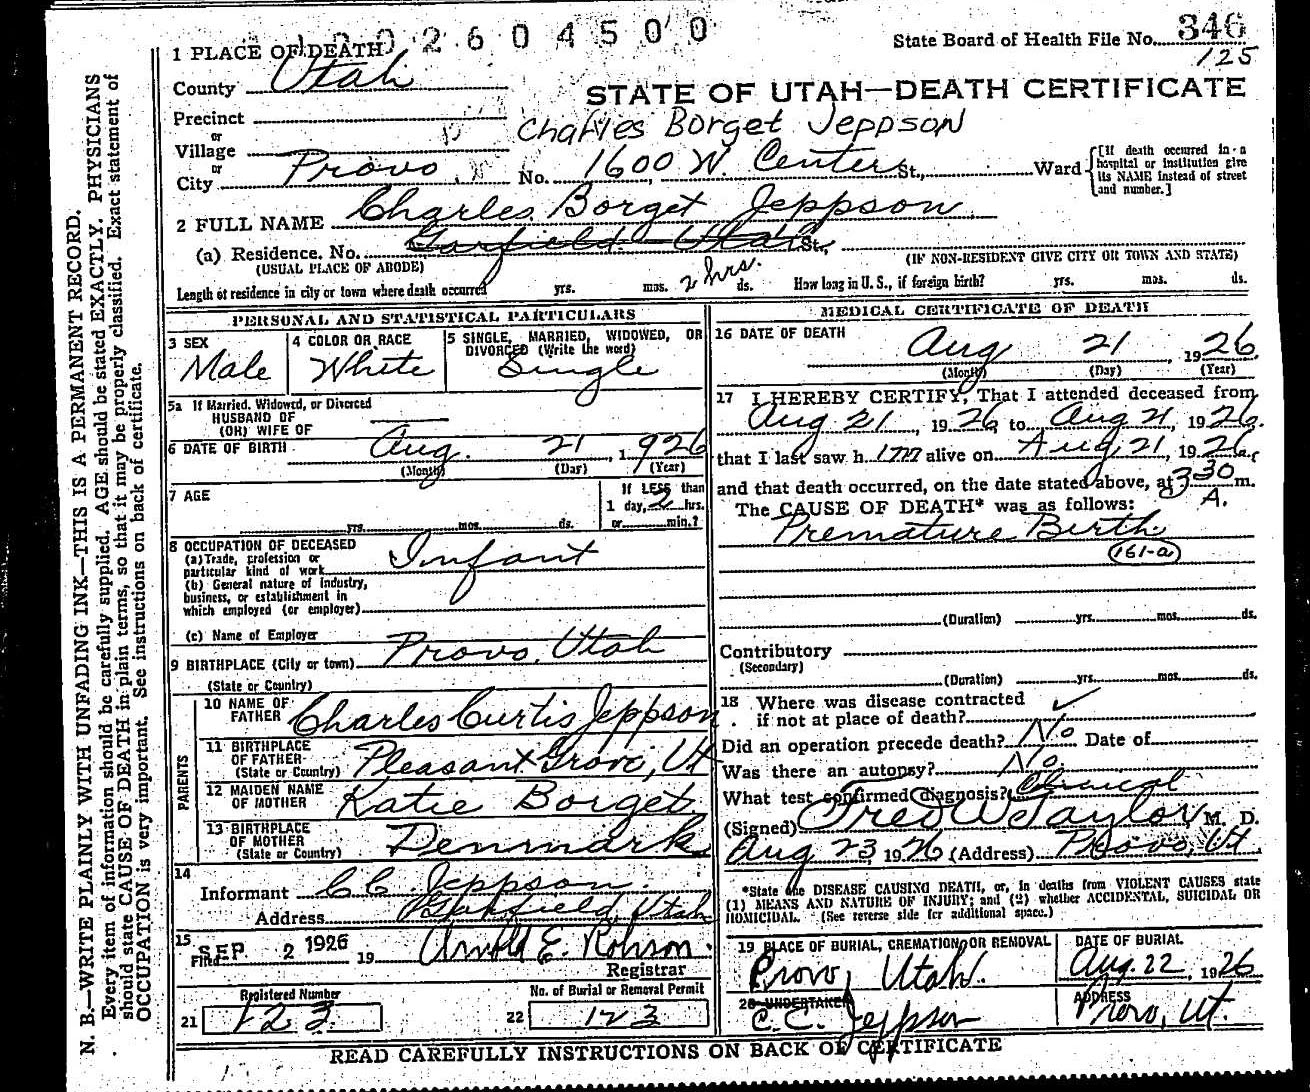 2604500
State Board of Health File No. 346
125
1 PLACE OF DEATH
County Utah
STATE OF UTAH—DEATH CERTIFICATE
Precinct
Charles Borget Jeppson
or
Village
or
City Provo No. 1600 W. Center St., Ward
[If death occurred in a hospital or institution give its NAME instead of street and number.]
2 FULL NAME Charles Borget Jeppson
(a) Residence. No. Garfield Utah St.,
(USUAL PLACE OF ABODE) (IF NON-RESIDENT GIVE CITY OR TOWN AND STATE)
Length of residence in city or town where death occurred yrs. mos. 2 hrs. ds. How long in U. S., if foreign birth? yrs. mos. ds.
PERSONAL AND STATISTICAL PARTICULARS
3 SEX
Male
4 COLOR OR RACE
White
5 SINGLE, MARRIED, WIDOWED, OR
DIVORCED (Write the word)
Single
5a If Married, Widowed, or Divorced
HUSBAND OF
(OR) WIFE OF
6 DATE OF BIRTH Aug. 21, 1926
(Month) (Day) (Year)
7 AGE
yrs. mos. ds.
If LESS than
1 day, 2 hrs.
or min.?
8 OCCUPATION OF DECEASED
(a) Trade, profession or
particular kind of work Infant
(b) General nature of Industry,
business, or establishment in
which employed (or employer)
(c) Name of Employer
9 BIRTHPLACE (City or town) Provo, Utah
(State or Country)
PARENTS
10 NAME OF
FATHER Charles Curtis Jeppson
11 BIRTHPLACE
OF FATHER
(State or Country) Pleasant Grove, Ut
12 MAIDEN NAME
OF MOTHER Katie Borget
13 BIRTHPLACE
OF MOTHER
(State or Country) Denmark
14
Informant C C Jeppson
Address Garfield, Utah
15
Filed SEP 2 1926 19 Arnold E. Robison
Registrar
Registered Number
21 123
No. of Burial or Removal Permit
22 123
MEDICAL CERTIFICATE OF DEATH
16 DATE OF DEATH
Aug 21, 1926
(Month) (Day) (Year)
17 I HEREBY CERTIFY, That I attended deceased from
Aug 21, 1926, to Aug 21, 1926.
that I last saw him alive on Aug 21, 1926,
and that death occurred, on the date stated above, at 3 30 m.
A.
The CAUSE OF DEATH* was as follows:
Premature Birth
161-a
(Duration) yrs. mos. ds.
Contributory
(Secondary)
(Duration) yrs. mos. ds.
18 Where was disease contracted
if not at place of death?
Did an operation precede death? No Date of
Was there an autopsy? No
What test confirmed diagnosis? Clinical
(Signed) Fred W Taylor, M. D.
Aug 23, 1926 (Address) Provo, Ut.
*State the DISEASE CAUSING DEATH, or, in deaths from VIOLENT CAUSES state
(1) MEANS AND NATURE OF INJURY; and (2) whether ACCIDENTAL, SUICIDAL OR
HOMICIDAL. (See reverse side for additional space.)
19 PLACE OF BURIAL, CREMATION, OR REMOVAL
Provo, Utah.
DATE OF BURIAL
Aug. 22, 1926
20 UNDERTAKER
C. C. Jeppson
ADDRESS
Provo, Ut.
READ CAREFULLY INSTRUCTIONS ON BACK OF CERTIFICATE
N. B.—WRITE PLAINLY WITH UNFADING INK—THIS IS A PERMANENT RECORD.
Every item of information should be carefully supplied. AGE should be stated EXACTLY. PHYSICIANS
should state CAUSE OF DEATH in plain terms, so that it may be properly classified. Exact statement of
OCCUPATION is very important. See instructions on back of certificate.